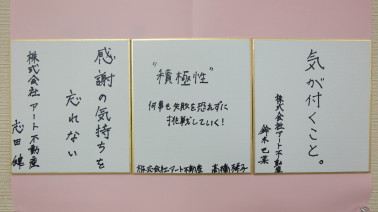 気が付くこと。
株式会社アート不動産
鈴木
"積極性"
何事も失敗を恐れずに
挑戦していく！
株式会社アート不動産 高橋
感謝の気持ちを
忘れない
株式会社アート不動産
志田 健